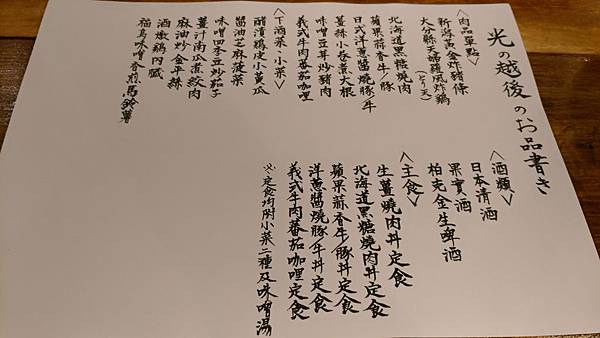 光の越後のお品書き
<酒類>
日本清酒
果實酒
柏克金生啤酒
<主食>
生薑燒肉丼定食
北海道黑糖燒肉丼定食
蘋果蒜香牛/豚丼定食
洋蔥醬燒豚/牛丼定食
義式牛肉蕃茄咖哩定食
※定食均附小菜二種及味噌湯
<肉品單點>
新潟黃金炸豬條
大分縣天婦羅風炸雞(とり天)
北海道黑糖燒肉
蘋果蒜香牛/豚
日式洋蔥醬燒豚/牛
薑絲小卷煮大根
味噌豆芽炒豬肉
義式牛肉蕃茄咖哩
<下酒菜·小菜>
醋漬雞皮小黃瓜
醬油芝麻菠菜
味噌四季豆炒茄子
薑汁南瓜煮絞肉
麻油炒金平絲
酒燉雞內臟
福島味噌香煎馬鈴薯